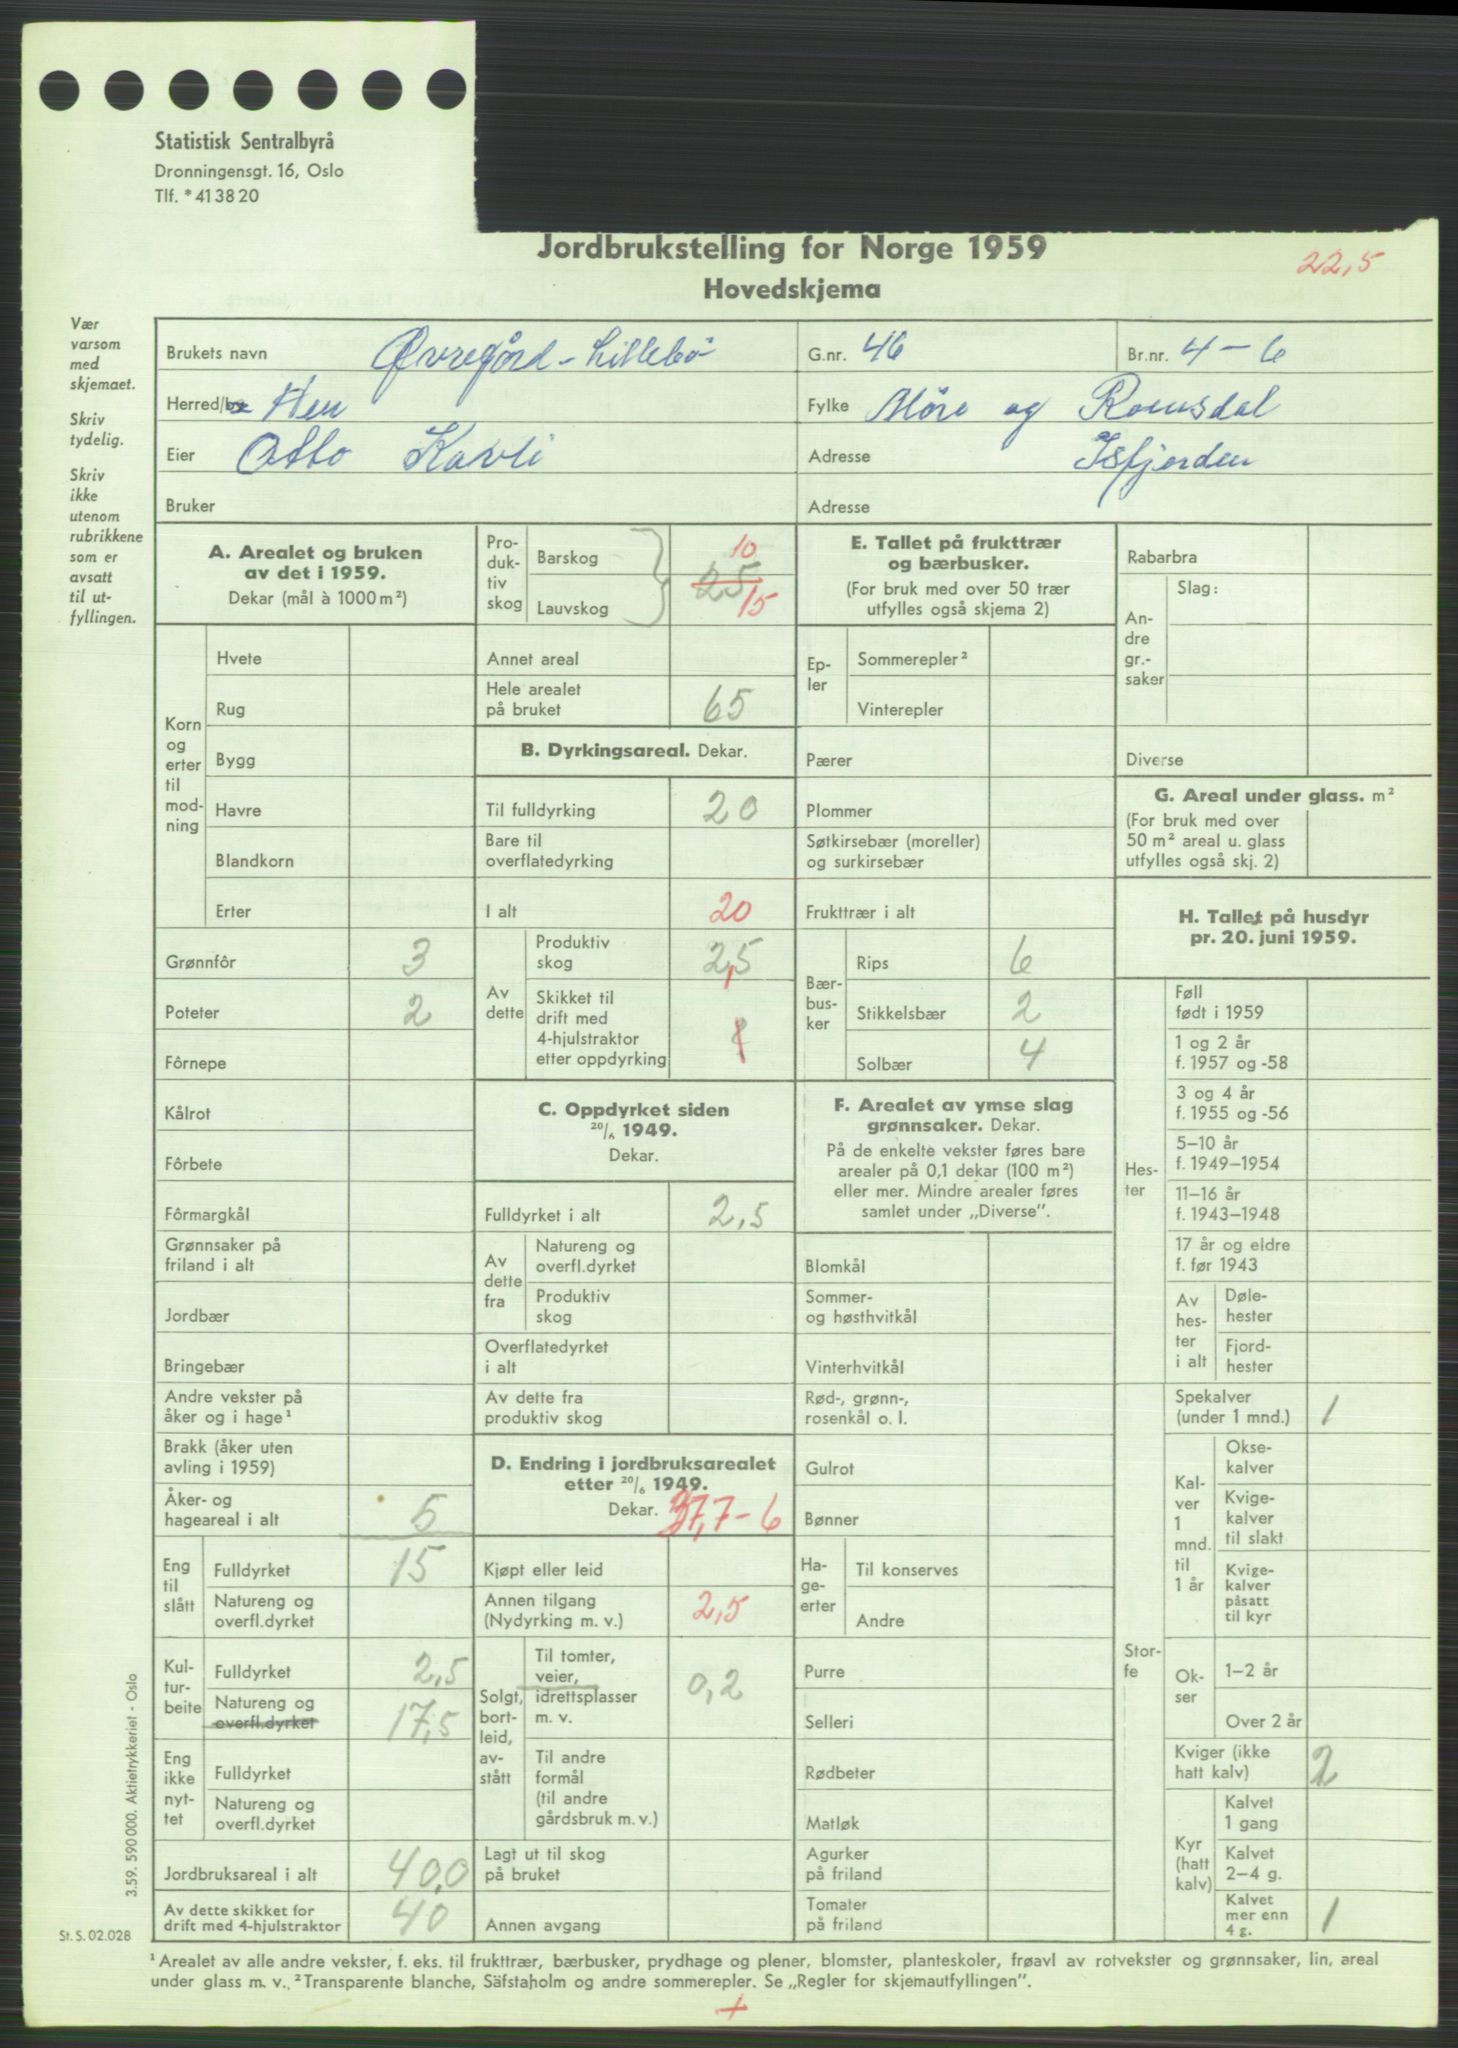 Statistisk Sentralbyrå
Dronningensgt. 16, Oslo
Tlf. * 41 38 20
Jordbrukstelling for Norge 1959
Hovedskjema
22,5
Vær varsom med skjemaet.
Skriv tydelig.
Skriv ikke utenom rubrikkene som er avsatt til utfyllingen.
Brukets navn Øvregård - Lillebö G.nr. 46 Br.nr. 4 - 6
Herred/by Hen Fylke Möre og Romsdal
Eier Otto Kavli Adresse Isfjorden
Bruker Adresse
A. Arealet og bruken
av det i 1959.
Dekar (mål à 1000 m²)
Korn og erter til modning
Hvete
Rug
Bygg
Havre
Blandkorn
Erter
Grønnfôr 3
Poteter 2
Fôrnepe
Kålrot
Fôrbete
Fôrmargkål
Grønnsaker på
friland i alt
Jordbær
Bringebær
Andre vekster på
åker og i hage¹
Brakk (åker uten
avling i 1959)
Åker- og
hageareal i alt 5
Eng til slått
Fulldyrket 15
Natureng og
overfl.dyrket
Kulturbeite
Fulldyrket 2,5
Natureng og
overfl.dyrket 17,5
Eng ikke nyttet
Fulldyrket
Natureng og
overfl.dyrket
Jordbruksareal i alt 40,0
Av dette skikket for
drift med 4-hjulstraktor 40
Produktiv skog
Barskog 10
25
Lauvskog 15
Annet areal
Hele arealet
på bruket 65
B. Dyrkingsareal. Dekar.
Til fulldyrking 20
Bare til
overflatedyrking
I alt 20
Av dette
Produktiv
skog 2,5
Skikket til
drift med
4-hjulstraktor
etter oppdyrking
C. Oppdyrket siden
20/6 1949.
Dekar.
Fulldyrket i alt 2,5
Av dette fra
Natureng og
overfl.dyrket
Produktiv
skog
Overflatedyrket
i alt
Av dette fra
produktiv skog
D. Endring i jordbruksarealet
etter 20/6 1949.
Dekar. 37,7 - 6
Kjøpt eller leid
Annen tilgang
(Nydyrking m. v.) 2,5
Solgt, bortleid, avstått
Til tomter,
veier,
idrettsplasser
m. v. 0,2
Til andre
formål
(til andre
gårdsbruk m. v.)
Lagt ut til skog
på bruket
Annen avgang
E. Tallet på frukttrær
og bærbusker.
(For bruk med over 50 trær
utfylles også skjema 2)
Epler
Sommerepler²
Vinterepler
Pærer
Plommer
Søtkirsebær (moreller)
og surkirsebær
Frukttrær i alt
Bærbusker
Rips 6
Stikkelsbær 2
Solbær 4
F. Arealet av ymse slag
grønnsaker. Dekar.
På de enkelte vekster føres bare
arealer på 0,1 dekar (100 m²)
eller mer. Mindre arealer føres
samlet under „Diverse".
Blomkål
Sommer-
og høsthvitkål
Vinterhvitkål
Rød-, grønn-,
rosenkål o. l.
Gulrot
Bønner
Hageerter
Til konserves
Andre
Purre
Selleri
Rødbeter
Matløk
Agurker
på friland
Tomater
på friland
Rabarbra
Andre gr.-saker
Slag:
Diverse
G. Areal under glass. m²
(For bruk med over
50 m² areal u. glass
utfylles også skj. 2)
H. Tallet på husdyr
pr. 20. juni 1959.
Hester
Føll
født i 1959
1 og 2 år
f. 1957 og -58
3 og 4 år
f. 1955 og -56
5–10 år
f. 1949–1954
11–16 år
f. 1943–1948
17 år og eldre
f. før 1943
Av hester i alt
Dølehester
Fjordhester
Storfe
Spekalver
(under 1 mnd.) 1
Kalver 1 mnd. til 1 år
Oksekalver
Kvigekalver
til slakt
Kvigekalver
påsatt
til kyr
Okser
1–2 år
Over 2 år
Kviger (ikke
hatt kalv) 2
Kyr (hatt kalv)
Kalvet
1 gang
Kalvet
2–4 g.
Kalvet
mer enn
4 g. 1
3.59. 590 000. Aktietrykkeriet - Oslo
St. S. 02.028
¹ Arealet av alle andre vekster, f. eks. til frukttrær, bærbusker, prydhage og plener, blomster, planteskoler, frøavl av rotvekster og grønnsaker, lin, areal
under glass m. v. ² Transparente blanche, Säfstaholm og andre sommerepler. Se „Regler for skjemautfyllingen".
+